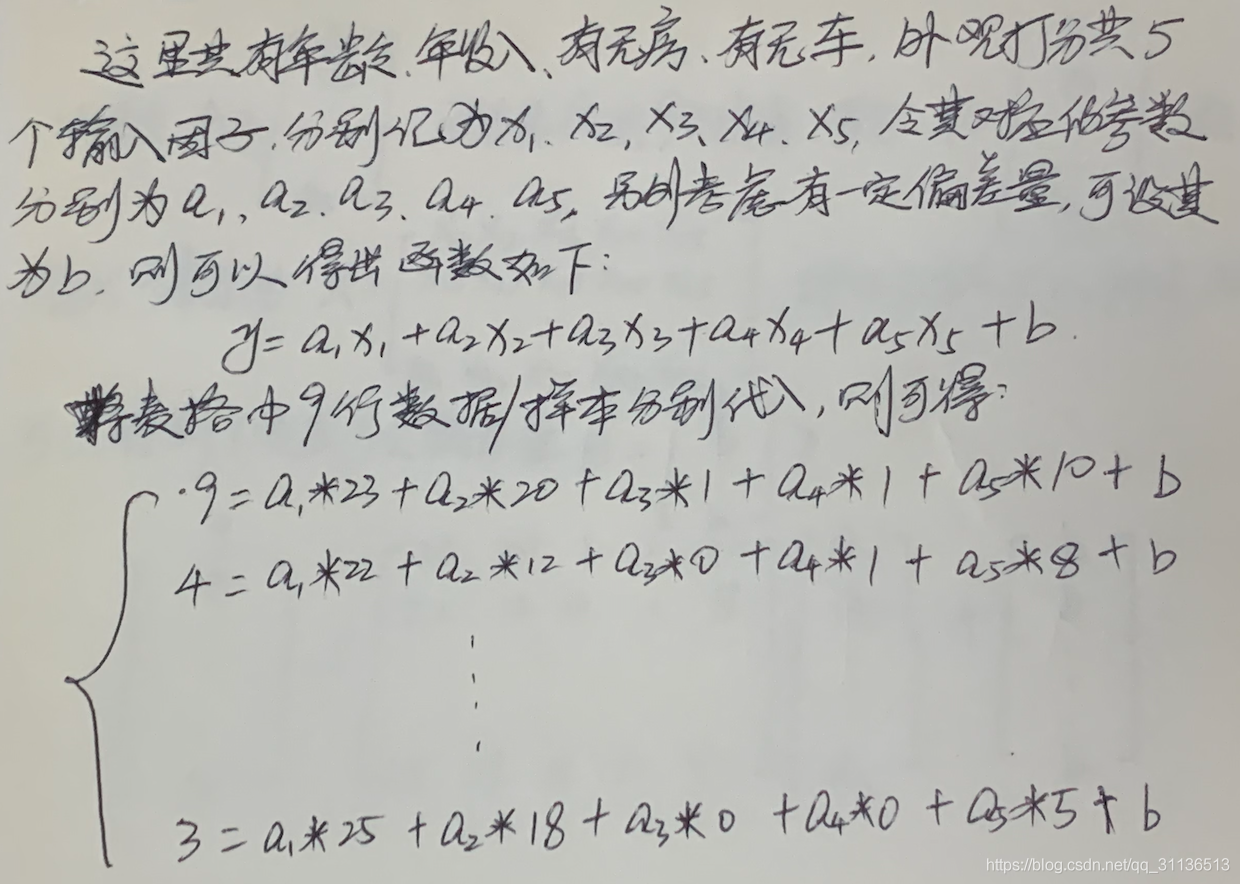 这里共有年龄、年收入、有无房、有无车,外观打分共5
个输入因子,分别记为x₁、x₂,x₃、x₄、x₅,令其对应的参数
分别为a₁、a₂、a₃、a₄、a₅,另外考虑有一定偏差量,可设其
为b,则可以得出函数如下:
y=a₁x₁+a₂x₂+a₃x₃+a₄x₄+a₅x₅+b.
将表格中9行数据/样本分别代入,则可得:
9=a₁*23+a₂*20+a₃*1+a₄*1+a₅*10+b
4=a₁*22+a₂*12+a₃*0+a₄*1+a₅*8+b
3=a₁*25+a₂*18+a₃*0+a₄*0+a₅*5+b
https://blog.csdn.net/qq_31136513